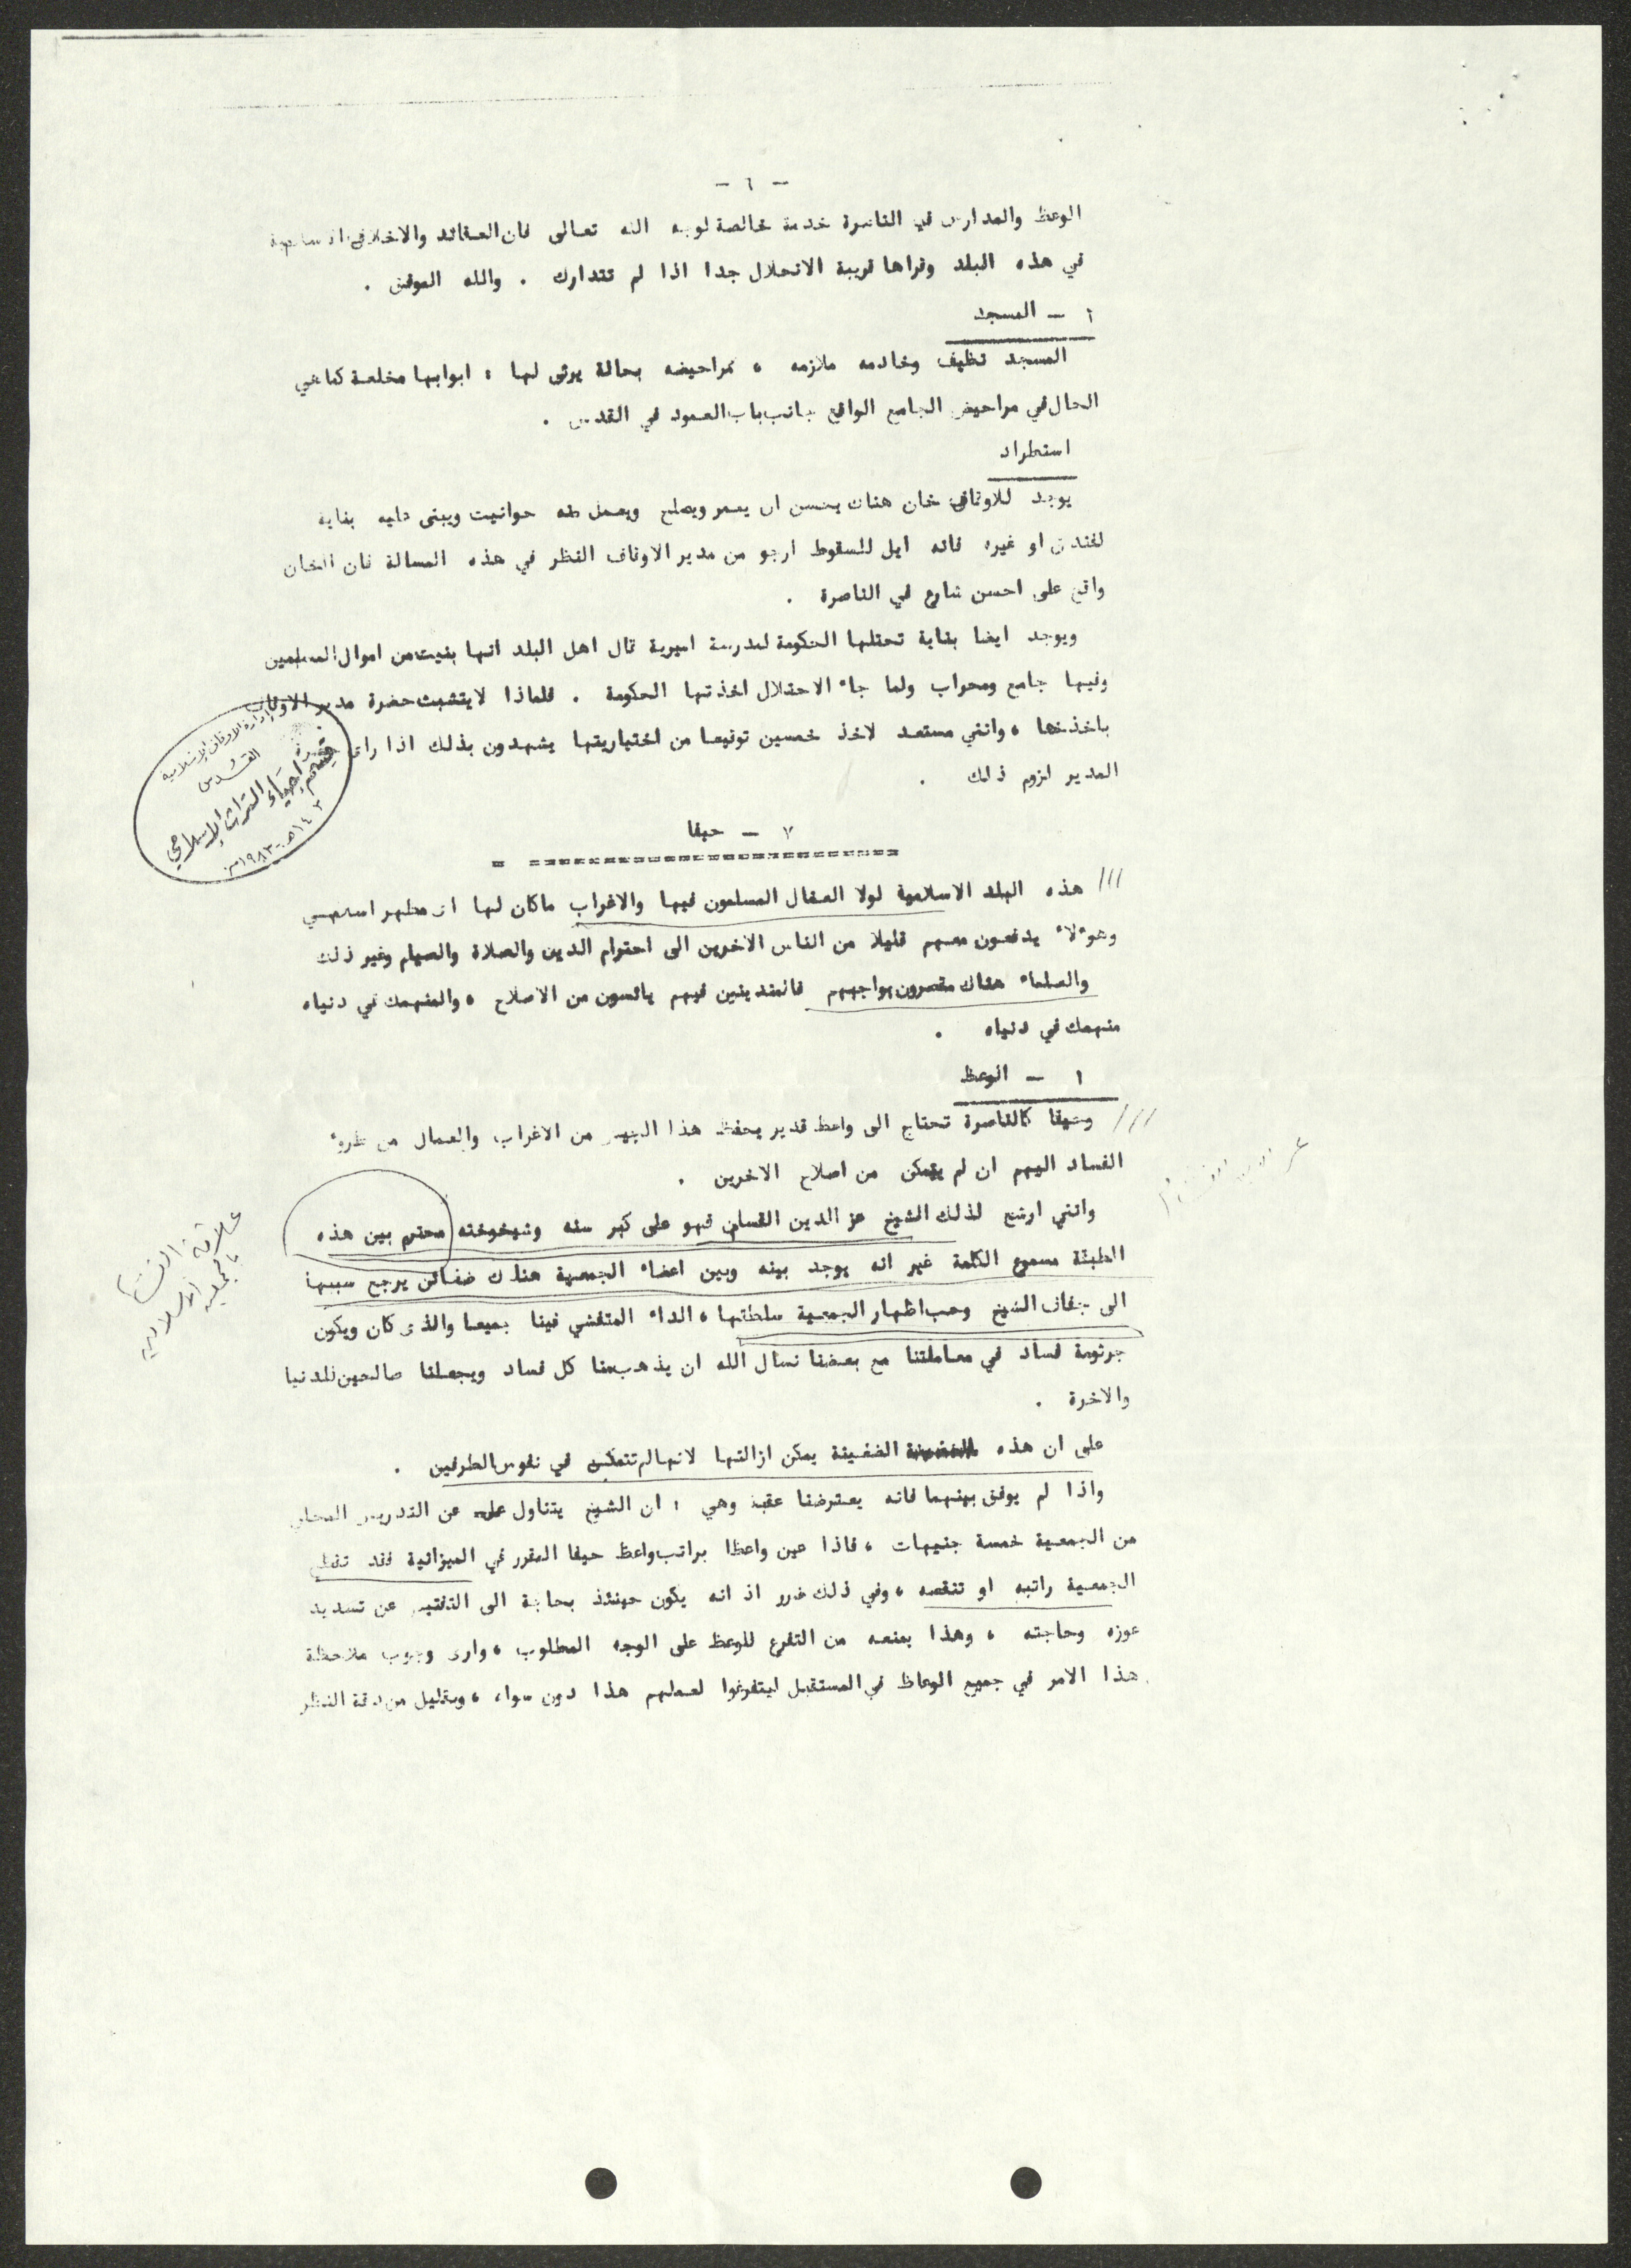 - ٦ -
الوعظ والمدارس في الناصرة خدمة خالصة لوجه الله تعالى فان العقائد والاخلاق الاسلامية
في هذه البلد وقراها قريبة الانحلال جدا اذا لم تتدارك . والله الموفق .
٢ - المسجد
المسجد نظيف وخادمه ملازمه ، مراحيضه بحالة يرثى لها : ابوابها مخلعة كما هي
الحال في مراحيض الجامع الواقع بجانب باب العمود في القدس .
استطراد
يوجد للاوقاف خان هناك يحسن ان يعمر ويصلح ويعمل له حوانيت ويبنى عليه بناية
لفندق او غيره فانه ايل للسقوط ارجو من مدير الاوقاف النظر في هذه المسالة فان الخان
واقع على احسن شارع في الناصرة .
ويوجد ايضا بناية تحتلها الحكومة لمدرسة اميرية قال اهل البلد انها بنيت من اموال المسلمين
وفيها جامع ومحراب ولما جاء الاحتلال اخذتها الحكومة . فلماذا لايتشبث حضرة مدير الاوقاف
باخذها ، وانني مستعد لاخذ خمسين توقيعا من اختياريتها يشهدون بذلك اذا راى
المدير لزوم ذلك .
إدارة الأوقاف الإسلامية
القدس
قسم إحياء التراث الإسلامي
١٤٠٣هـ - ١٩٨٣م
٧ - حيفا
/// هذه البلد الاسلامية لولا العمال المسلمون فيها والاغراب ماكان لها اى مظهر اسلامي
وهؤلاء يدفعون معهم قليلا من الناس الاخرين الى احترام الدين والصلاة والصيام وغير ذلك
والعلماء هناك مقصرون بواجبهم فالمتدينين فيهم يائسون من الاصلاح ، والمنهمك في دنياه
منهمك في دنياه .
١ - الوعظ
/// وحيفا كالناصرة تحتاج الى واعظ قدير يحفظ هذا البهم من الاغراب والعمال من طروء
الفساد اليهم ان لم يتمكن من اصلاح الاخرين .
وانني ارشح لذلك الشيخ عز الدين القسام فهو على كبر سنه وشيخوخته محترم بين هذه
الطبقة مسموع الكلمة غير انه يوجد بينه وبين اعضاء الجمعية هناك ضغائن يرجع سببها
علاقة القسام
بالجمعية الاسلامية
الى جفاف الشيخ وحب اظهار الجمعية سلطتها ، الداء المتفشي فينا جميعا والذى كان ويكون
جرثومة فساد في معاملتنا مع بعضنا نسال الله ان يذهب عنا كل فساد ويجعلنا صالحين للدنيا
والاخرة .
على ان هذه الضغينة يمكن ازالتها لانها لم تتمكن في نفوس الطرفين .
واذا لم يوفق بينهما فانه يعترضنا عقبة وهي : ان الشيخ يتناول عن التدريس المحلي
من الجمعية خمسة جنيهات ، فاذا عين واعظا براتب واعظ حيفا المقرر في الميزانية فقد تقطع
الجمعية راتبه او تنقصه ، وفي ذلك ضرر اذ انه يكون حينئذ بحاجة الى التفتيش عن تسديد
عوزه وحاجته ، وهذا يمنعه من التفرغ للوعظ على الوجه المطلوب ، وارى وجوب ملاحظة
هذا الامر في جميع الوعاظ في المستقبل ليتفرغوا لعملهم هذا دون سواه ، وبقليل من دقة النظر